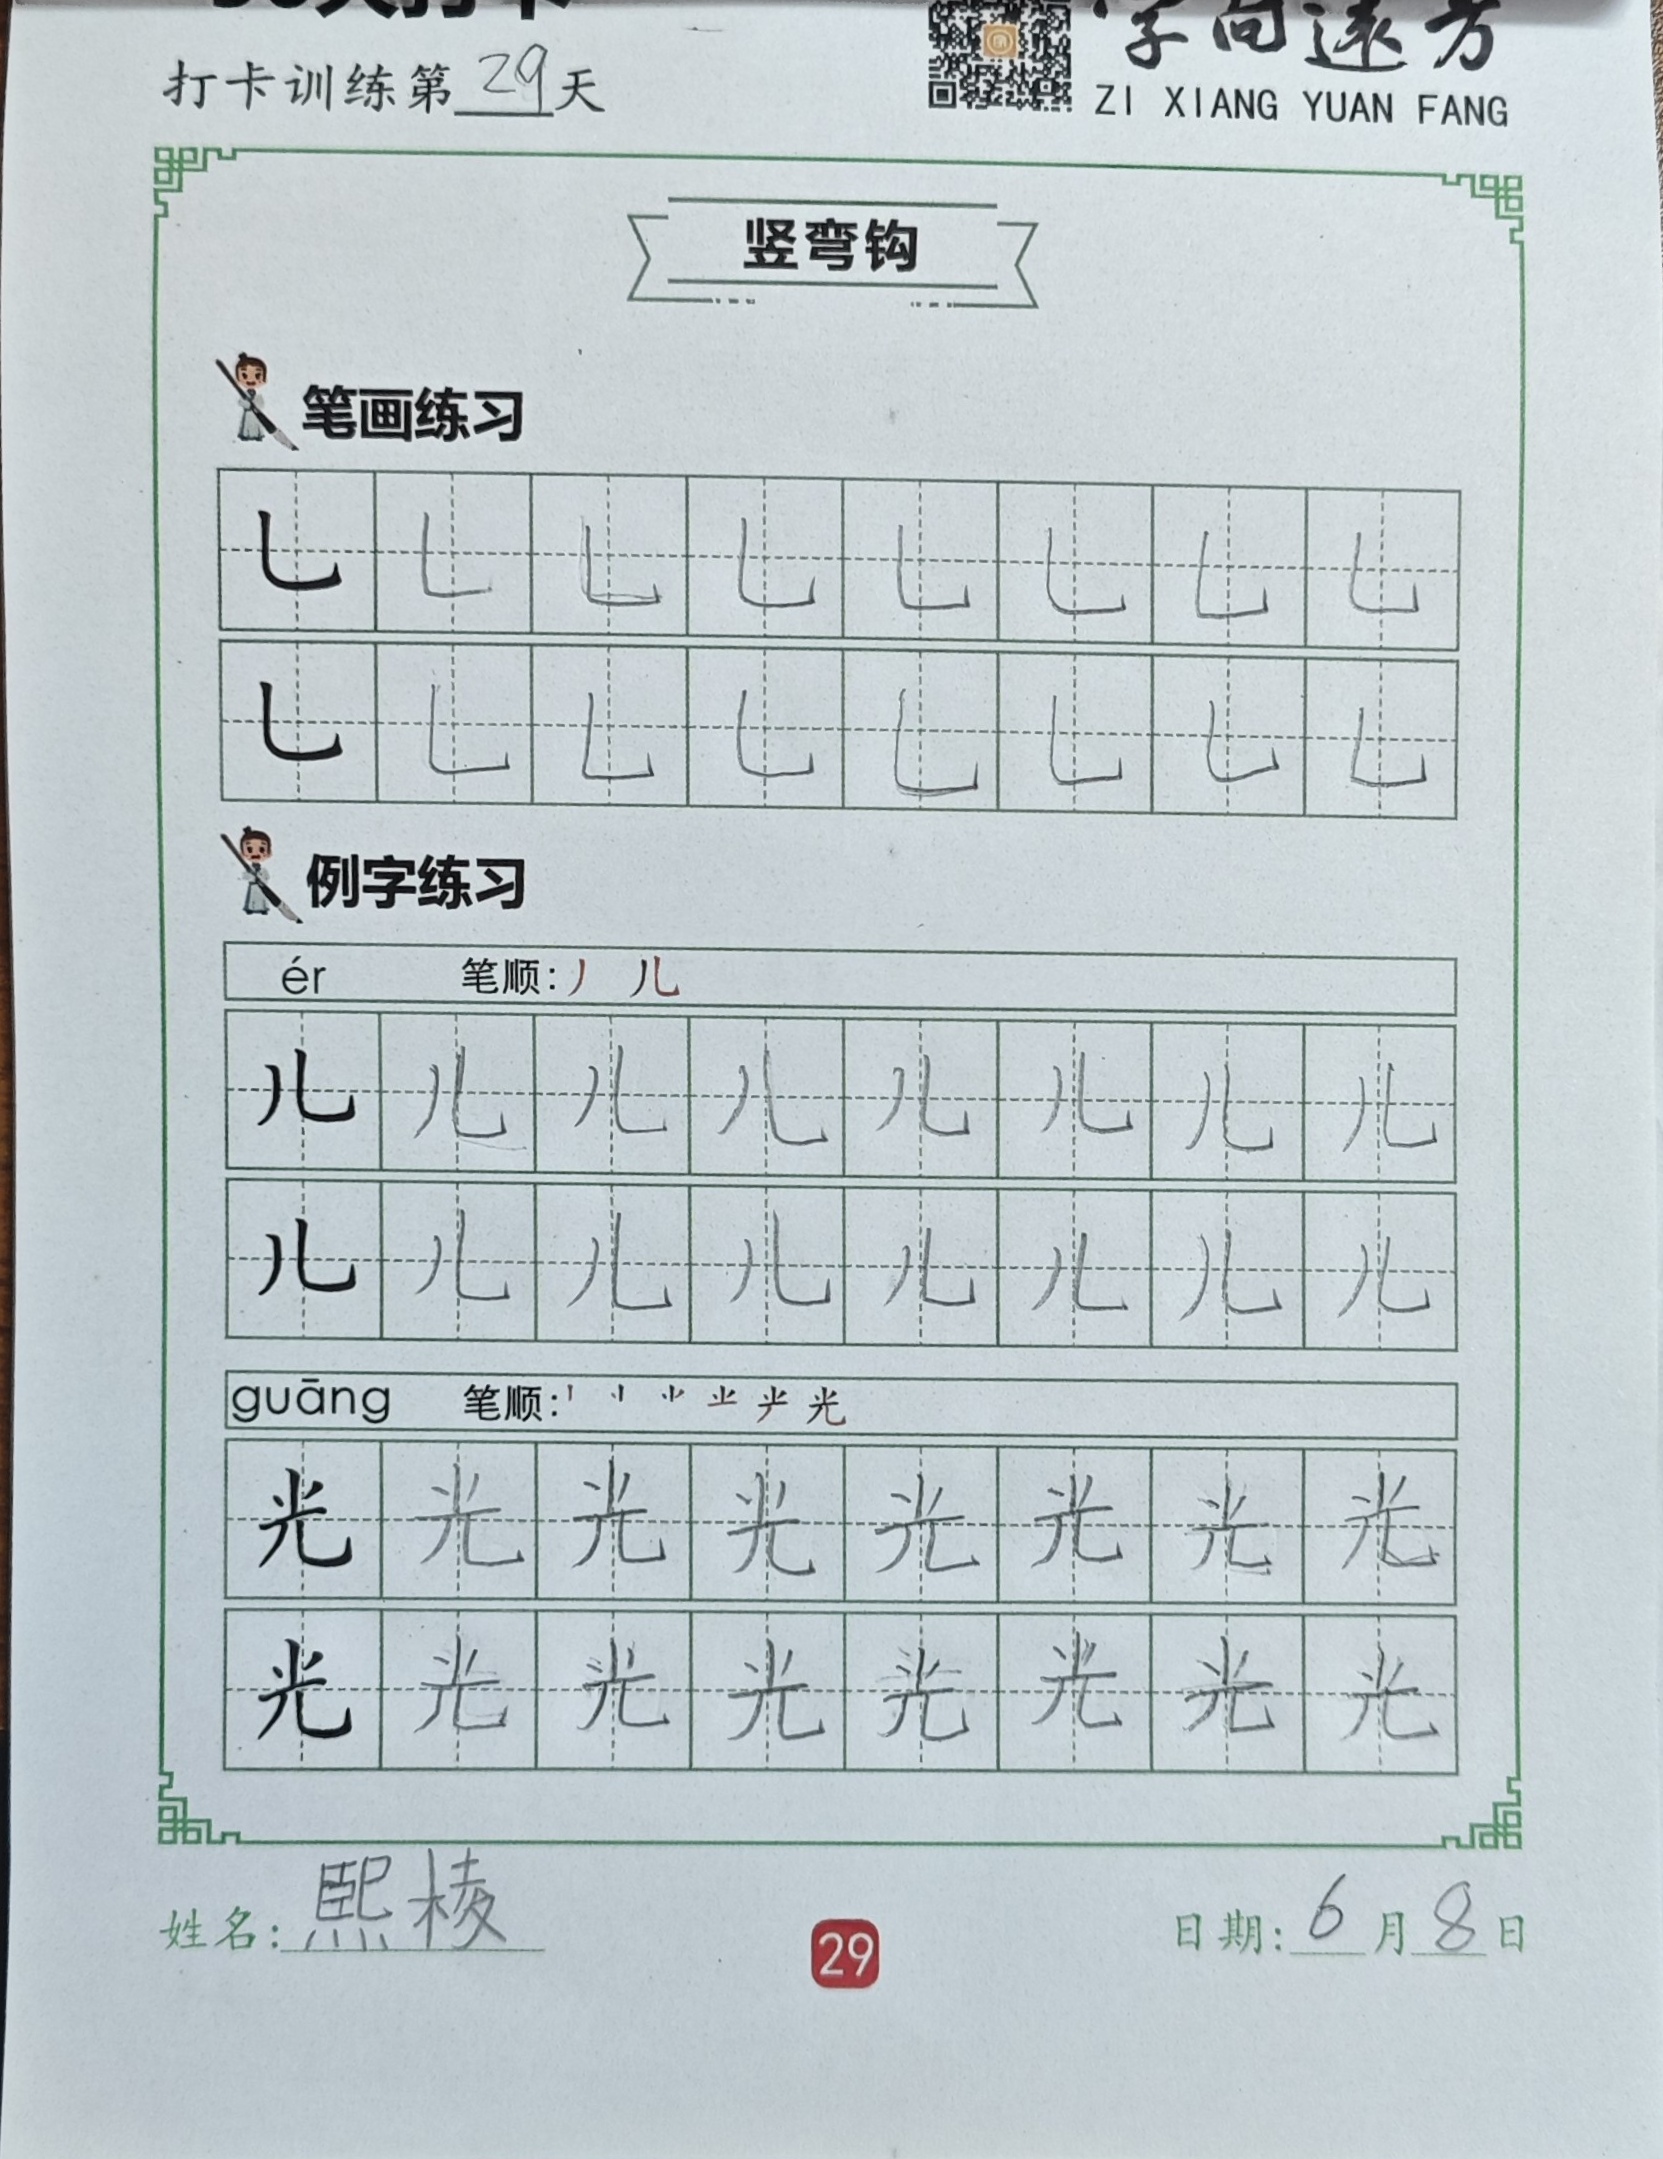 打卡训练第29天
字向远方
ZI XIANG YUAN FANG
竖弯钩
笔画练习
乚 乚 乚 乚 乚 乚 乚 乚
乚 乚 乚 乚 乚 乚 乚 乚
例字练习
ér 笔顺: 丿 儿
儿 儿 儿 儿 儿 儿 儿 儿
儿 儿 儿 儿 儿 儿 儿 儿
guāng 笔顺: 光
光 光 光 光 光 光 光 光
光 光 光 光 光 光 光 光
姓名: 熙棱
29
日期: 6月8日